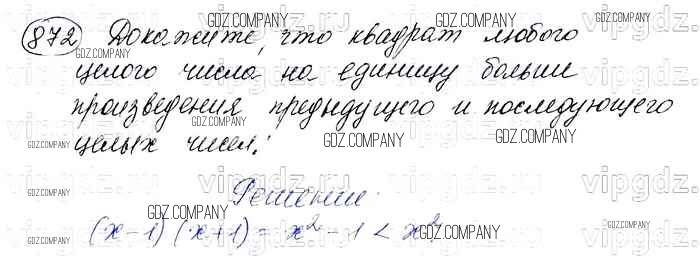 872 Докажите, что квадрат любого
целого числа на единицу больше
произведения предыдущего и последующего
целых чисел.
Решение.
(x-1)(x+1) = x² - 1 < x²
GDZ.COMPANY
vipgdz.ru